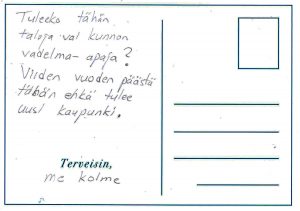 Tuleeko tähän
taloja vai kunnon
vadelma-apaja?
Viiden vuoden päästä
tähän ehkä tulee
uusi kaupunki.
Terveisin,
me kolme